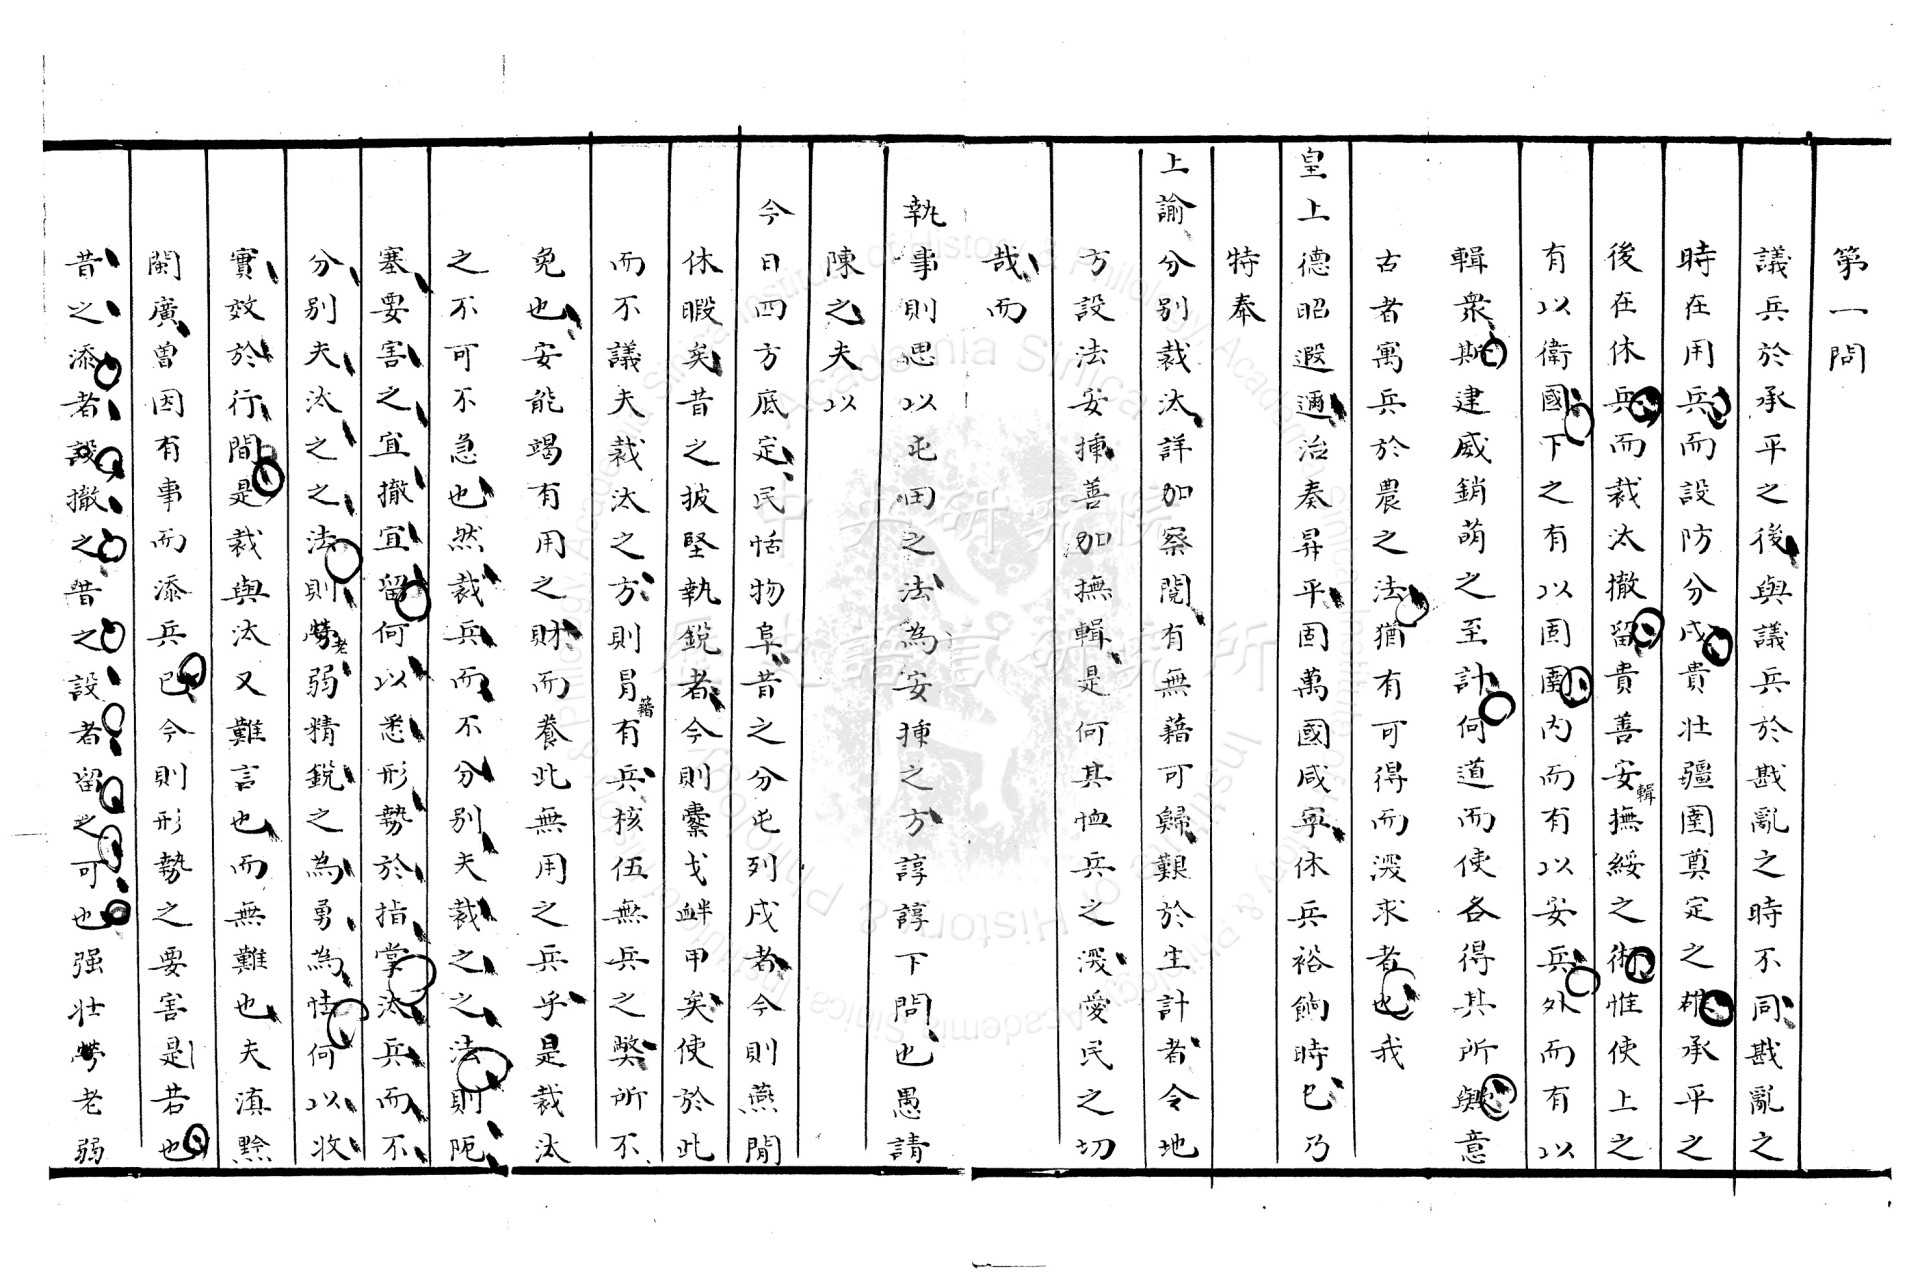 第一問
議兵於承平之後與議兵於戡亂之時不同戡亂之
時在用兵而設防分戍貴壯疆圉奠定之雄承平之
後在休兵而裁汰撤留貴善安輯撫綏之術惟使上之
有以衛國下之有以固圉內而有以安兵外而有以
輯衆斯建威銷萌之至計何道而使各得其所歟意
古者寓兵於農之法猶有可得而深求者也我
皇上德昭遐邇治奏昇平固萬國咸寧休兵裕餉時已乃
特奉
上諭分别裁汰詳加察閱有無藉可歸艱於生計者令地
方設法安揷善加撫輯是何其恤兵之深愛民之切
哉而
執事則思以屯田之法為安揷之方諄諄下問也愚請
陳之夫以
今日四方底定民恬物阜昔之分屯列戍者今則燕閒
休暇矣昔之披堅執銳者今則櫜戈衅甲矣使於此
而不議夫裁汰之方則冒藉有兵核伍無兵之獘所不
免也安能竭有用之財而養此無用之兵乎是裁汰
之不可不急也然裁兵而不分别夫裁之之法則阨
塞要害之宜撤宜留何以悉形勢於指掌汰兵而不
分别夫汰之之法則老弱精銳之為勇為怯何以收
實效於行間是裁與汰又難言也而無難也夫滇黔
閩廣曽因有事而添兵已今則形勢之要害是若也
昔之添者設撤之昔之設者留之可也强壯老弱